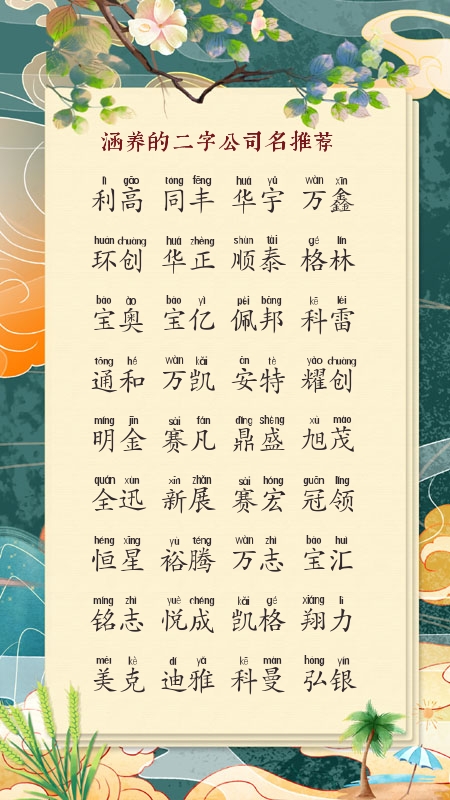 涵养的二字公司名推荐
lì gāo tóng fēng huá yǔ wàn xīn
利高 同丰 华宇 万鑫
huán chuàng huá zhèng shùn tài gé lín
环创 华正 顺泰 格林
bǎo ào bǎo yì pèi bāng kē léi
宝奥 宝亿 佩邦 科雷
tōng hé wàn kǎi ān tè yào chuàng
通和 万凯 安特 耀创
míng jīn sài fán dǐng shèng xù mào
明金 赛凡 鼎盛 旭茂
quán xùn xīn zhǎn sài hóng guān lǐng
全迅 新展 赛宏 冠领
héng xīng yù téng wàn zhì bǎo huì
恒星 裕腾 万志 宝汇
míng zhì yuè chéng kǎi gé xiáng lì
铭志 悦成 凯格 翔力
měi kè dí yǎ kē màn hóng yín
美克 迪雅 科曼 弘银